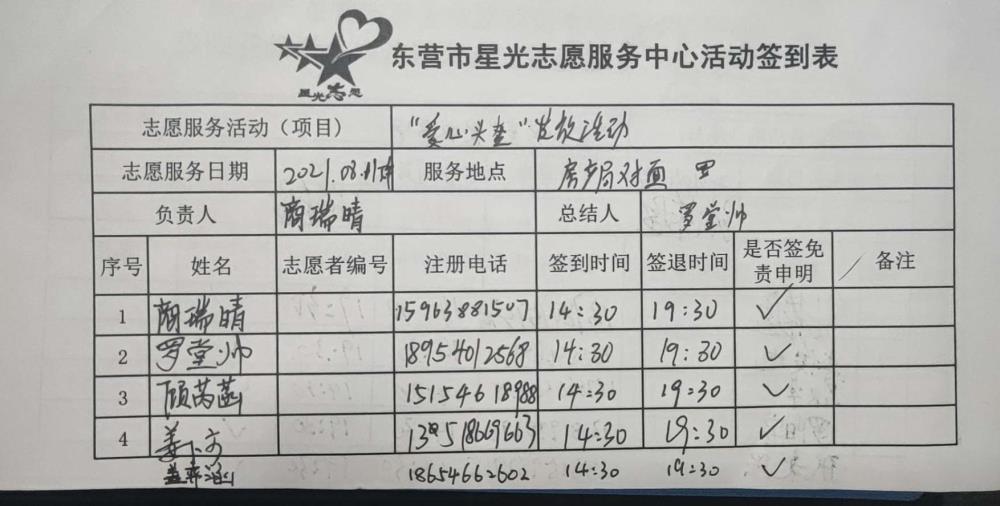 星光志愿
东营市星光志愿服务中心活动签到表
志愿服务活动（项目） "爱心头盔"发放活动
志愿服务日期 2021.08.11 服务地点 房产局对面
负责人 颜瑞晴 总结人 罗堂帅
序号 姓名 志愿者编号 注册电话 签到时间 签退时间 是否签免责申明 备注
1 颜瑞晴 15963881507 14:30 19:30 ✓
2 罗堂帅 18954012568 14:30 19:30 ✓
3 顾芮菡 15154618988 14:30 19:30 ✓
4 姜 14:30 19:30 ✓
18654662602 14:30 19:30 ✓